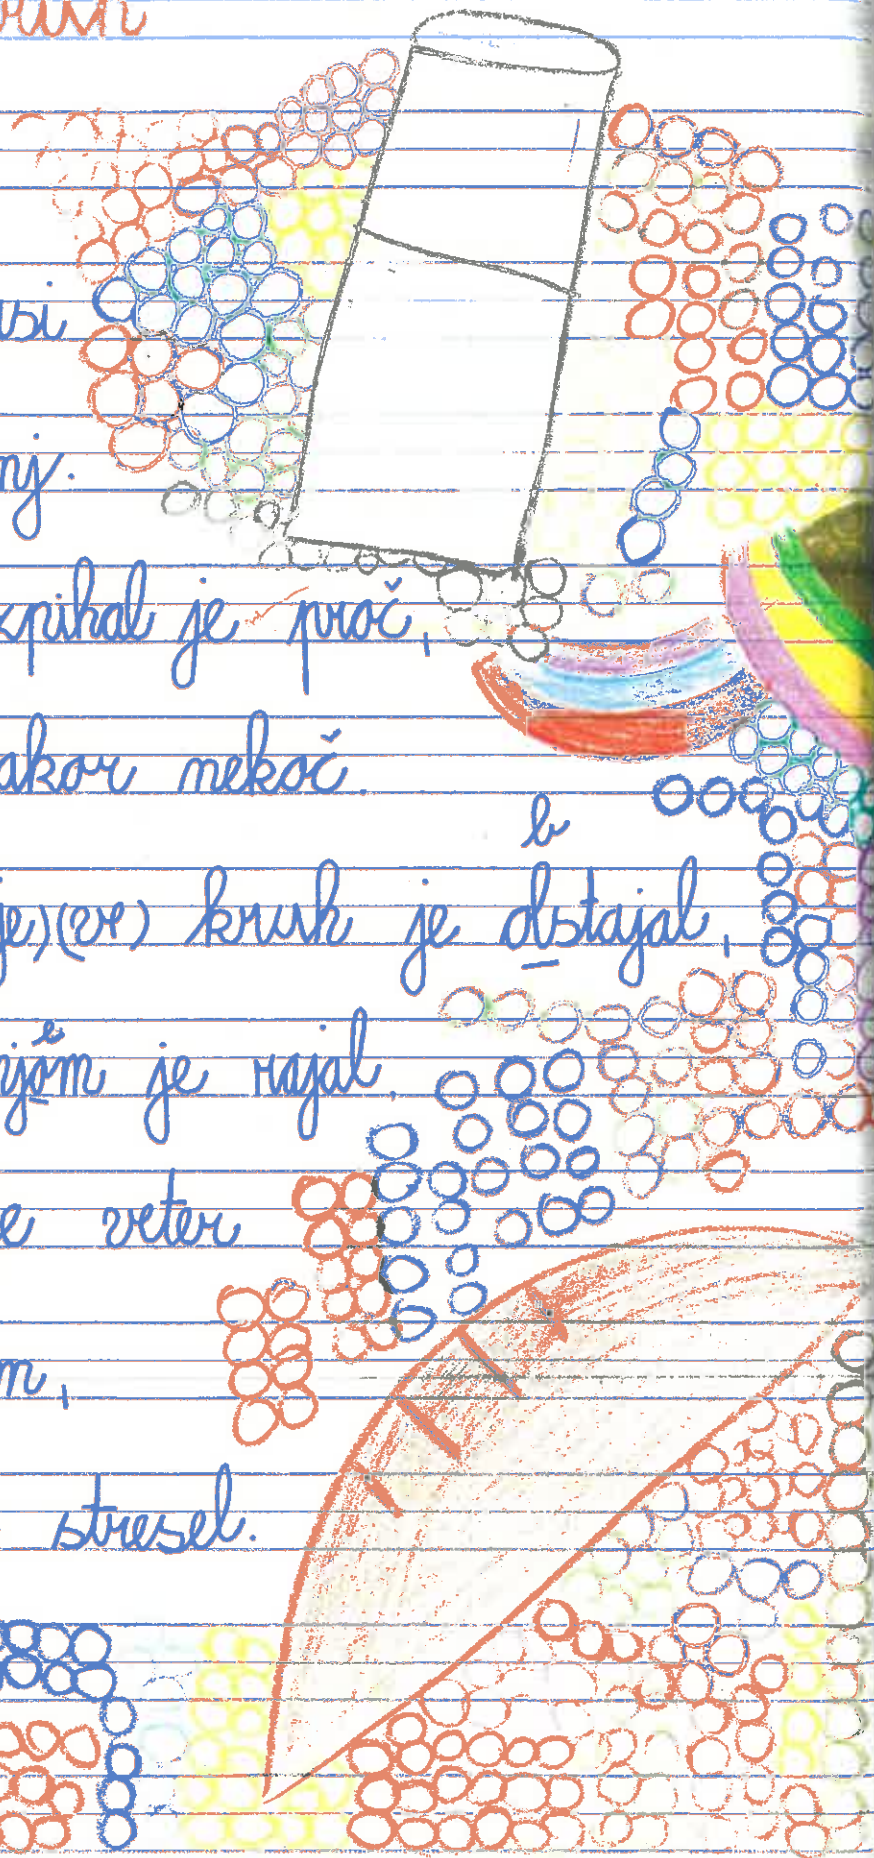 usi
nj.
pihal je proč,
akor nekoč.
b
je)(vr) kruh je obstajal,
e
njem je rajal.
e veter
m,
stresel.